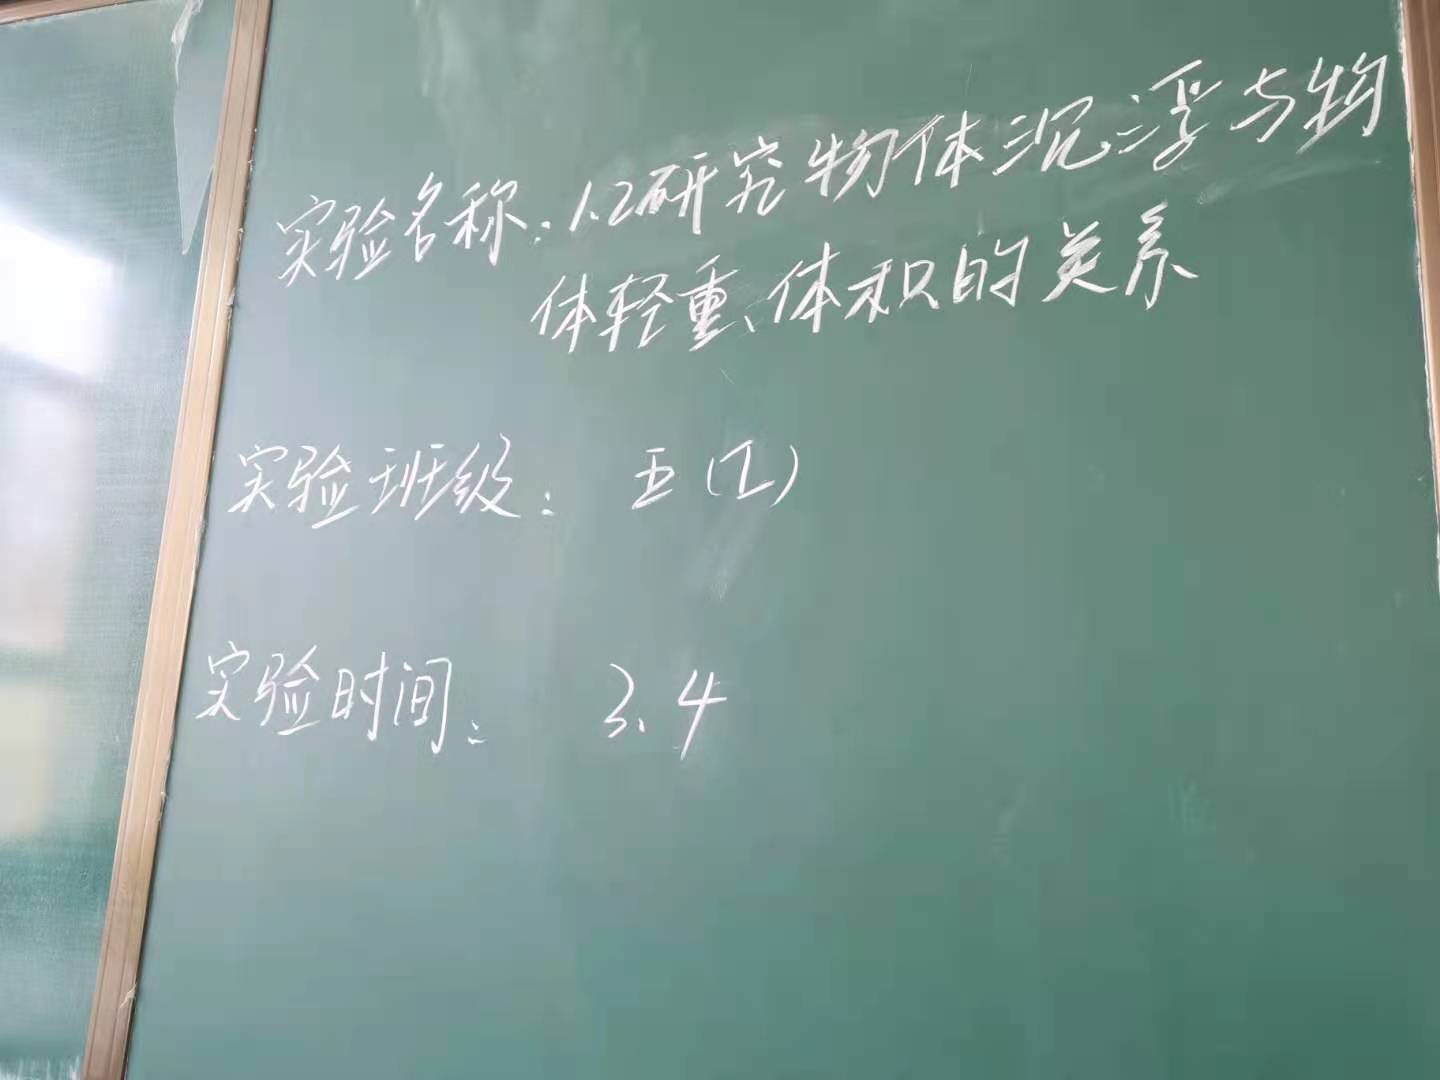 实验名称:1.2研究物体沉浮与物
体轻重、体积的关系
实验班级: 五(1)
实验时间: 3.4